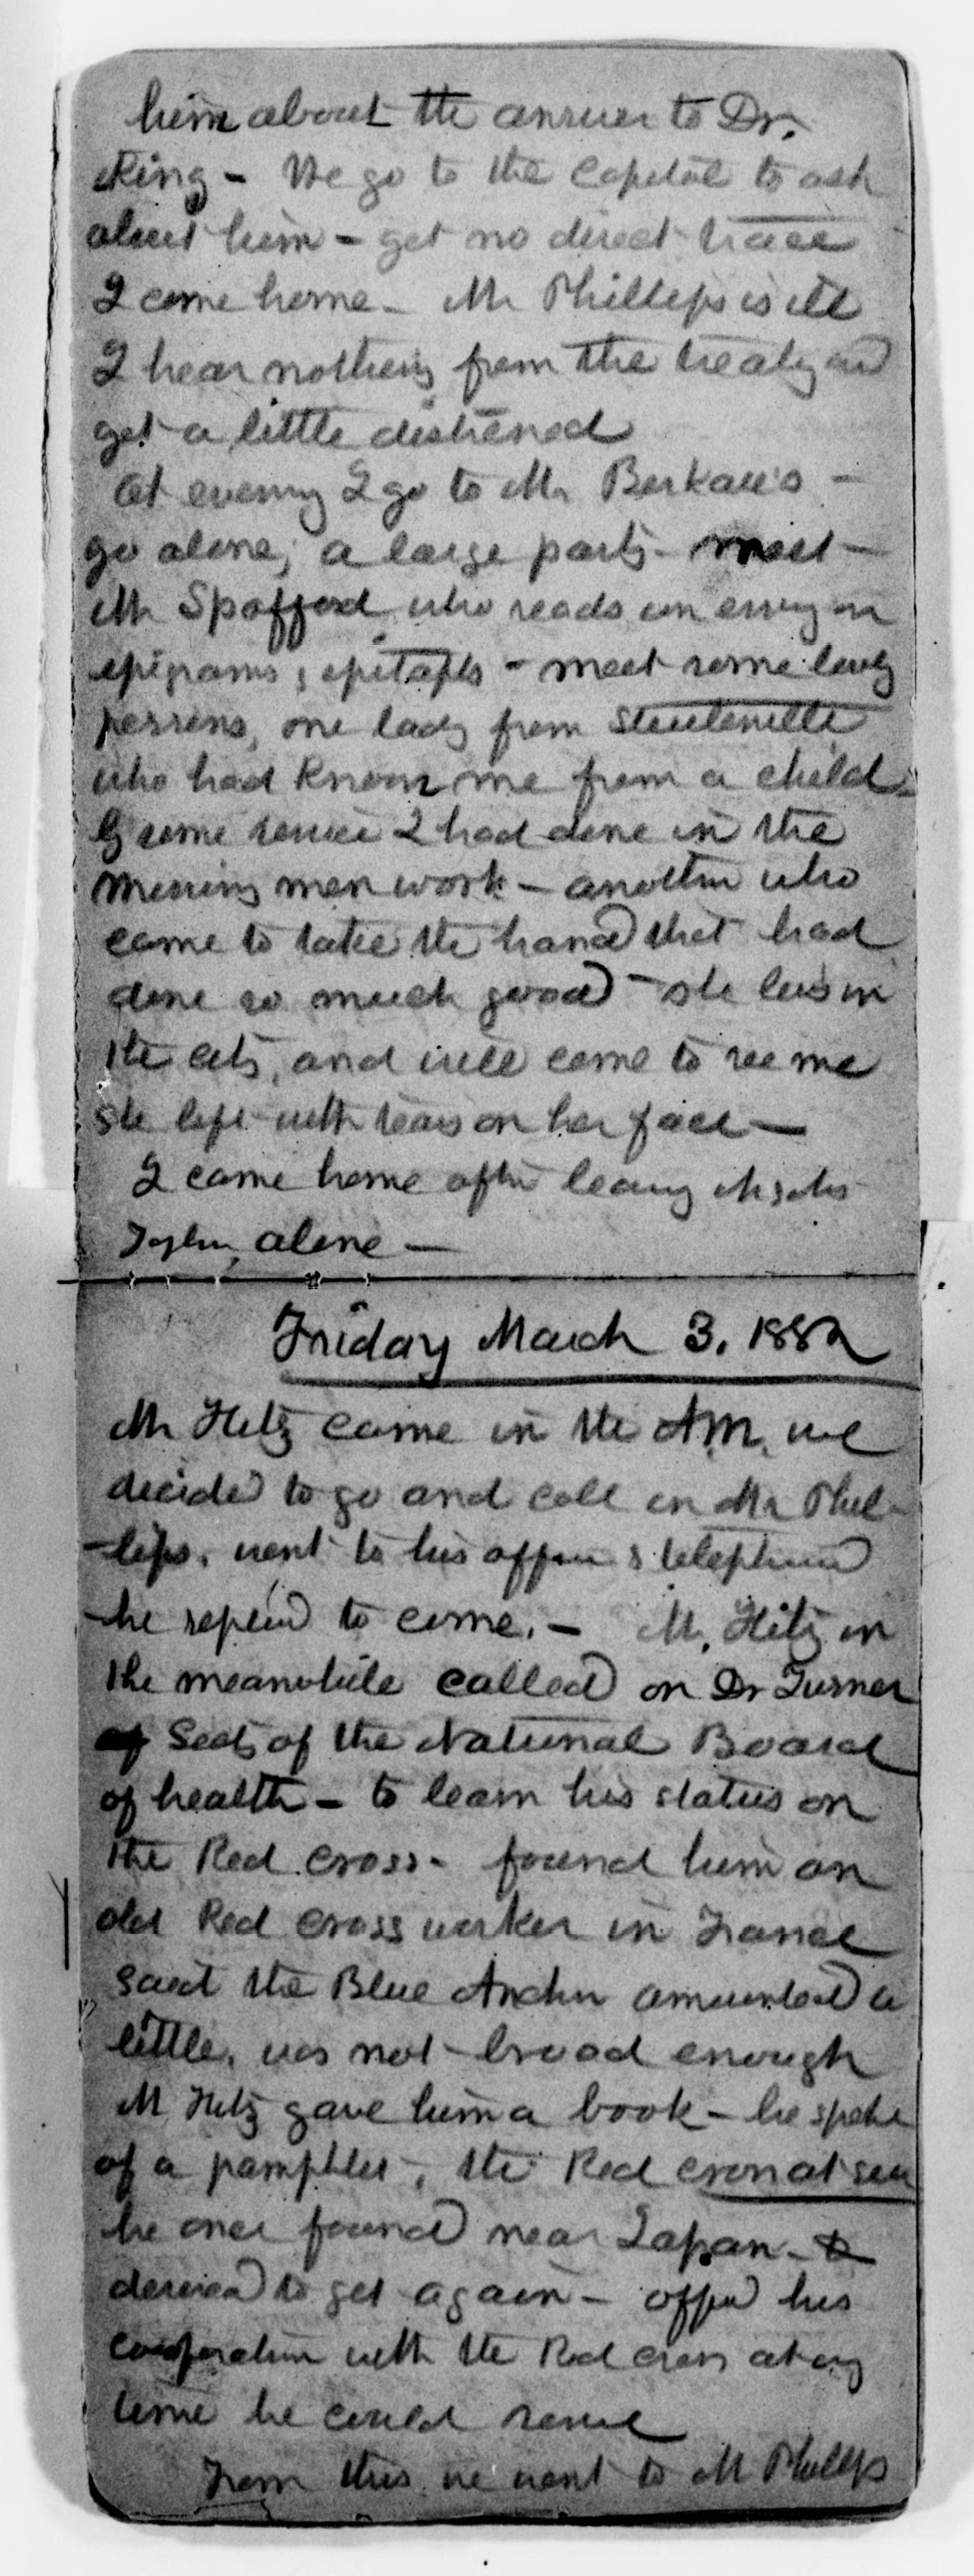 him about the answer to Dr.
King - We go to the Capitol to ask
about him - get no direct trace
I come home - Mr Phillips is ill
I hear nothing from the treaty and
get a little distressed
At evening I go to Mr
go alone, a large party - meet -
Mr Spofford who reads an essay on
epigrams & epitaphs - meet some lovely
persons, one lady from Steubenville
who had known me from a child -
By some service I had done in the
missing men work - another who
came to take the hand that had
done so much good - she lives in
the city, and will come to see me
she left with tears on her face -
I came home after leaving
alone -
Friday March 3. 1882
Mr Hitz came in the A.M. we
decided to go and call on Mr Phil-
-lips. went to his office & telephoned
-he replied to come. - Mr. Hitz in
the meanwhile called on Dr Turner
of Secty of the National Board
of health - to learn his status on
the Red Cross - found him an
old Red Cross worker in France
said the Blue Anchor amounted a
little, was not broad enough
M Hitz gave him a book - he spoke
of a pamphlet, the Red cross at sea
he once found near Japan - &
desired to get again - offered his
cooperation with the Red cross at any
time he could serve
From this we went to M Phillips